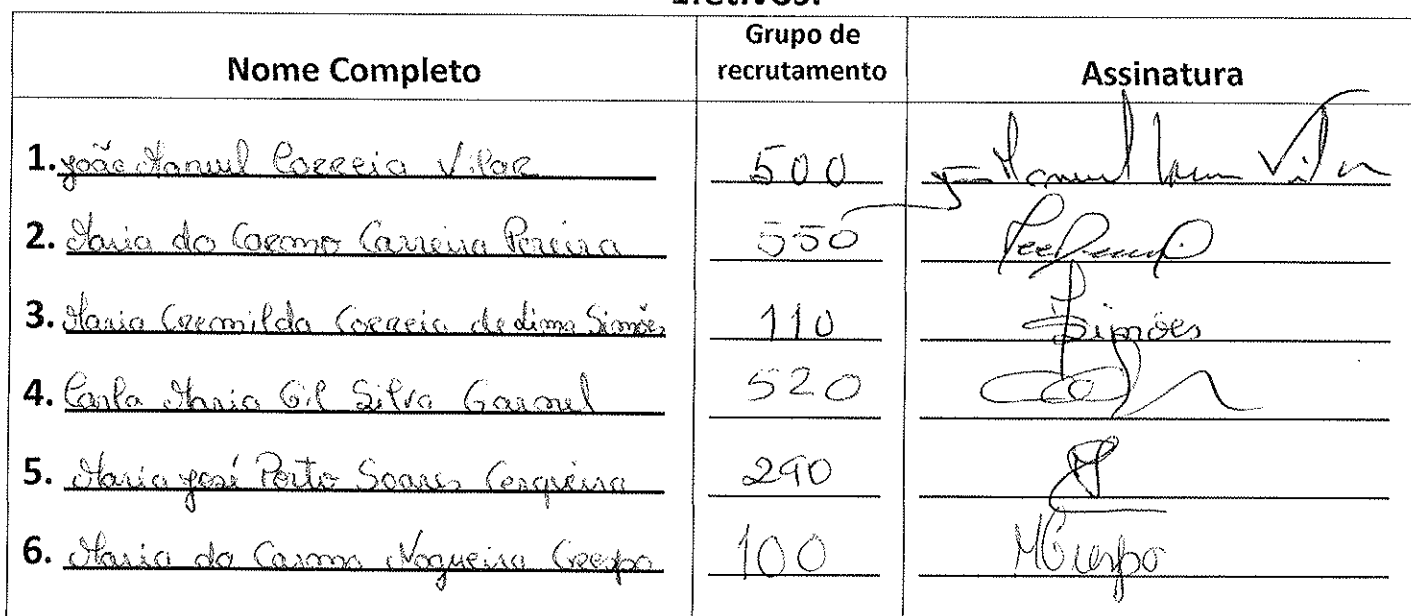 Efetivos:
Nome Completo Grupo de recrutamento Assinatura
1. João Manuel Correia Vilar 500 Manuel Vilar
2. Maria do Carmo Carreira Pereira 550
3. Maria Cremilda Correia de Lima Simões 110 Simões
4. Carla Maria Gil Silva Garmel 520
5. Maria José Porto Soares Cerqueira 290
6. Maria do Carmo Nogueira Crespo 100 MCrespo